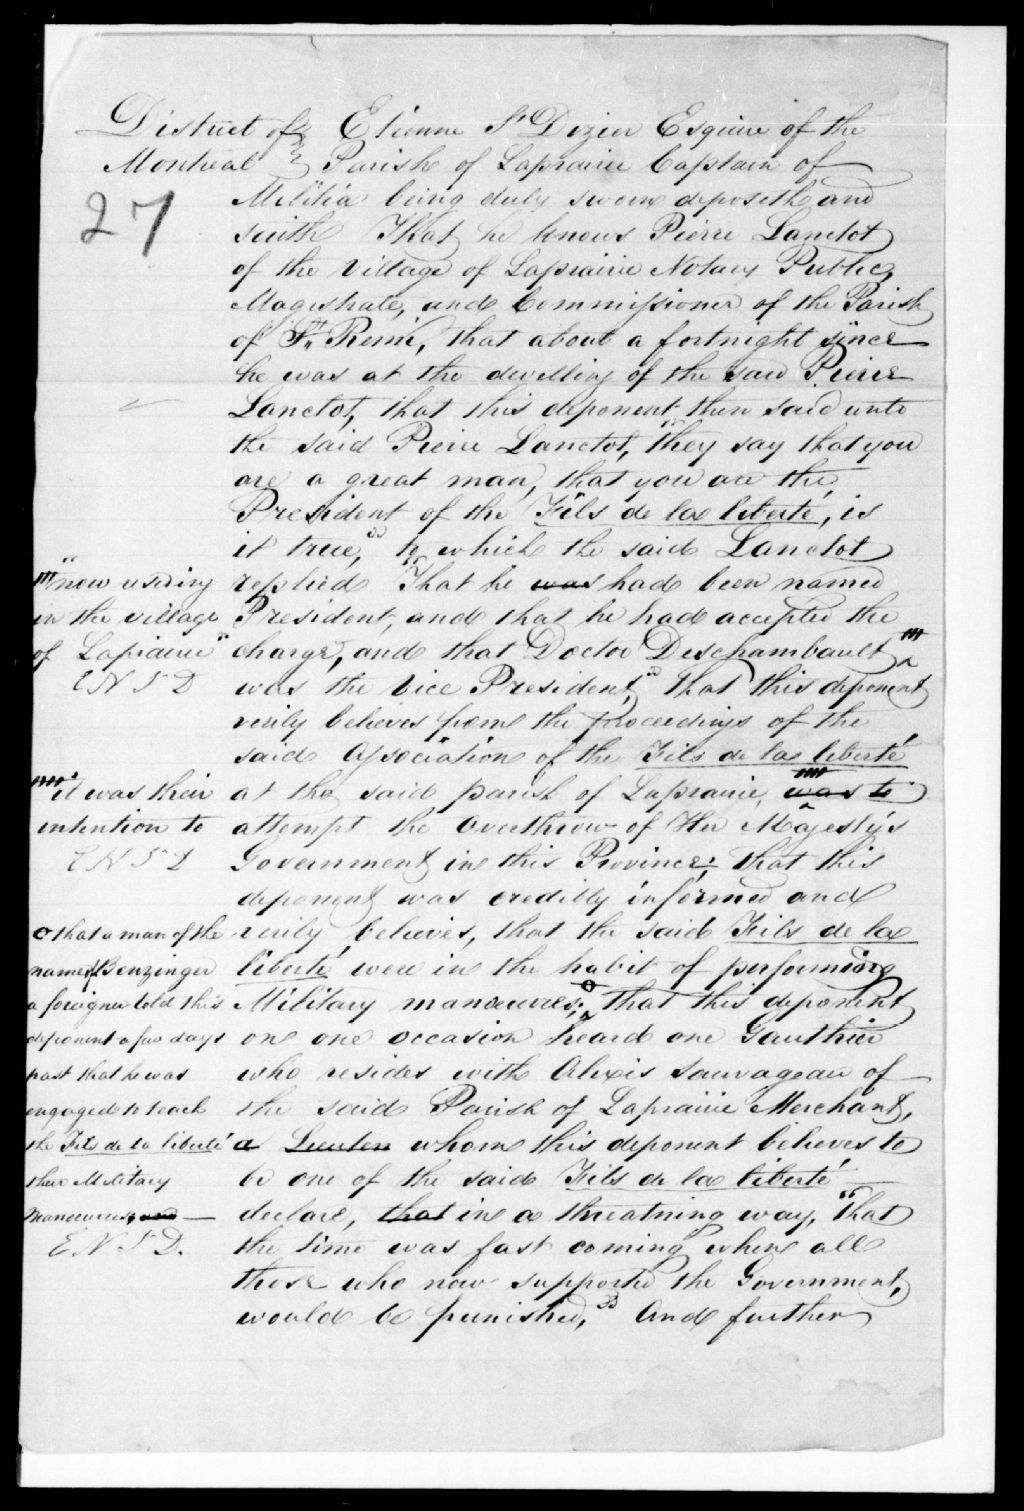 District of } Etienne St Dizier Esquire of the
Montreal } Parish of Laprairie Captain of
27
Militia being duly sworn deposeth and
saith That he knows Pierre Lanctot
of the Village of Laprairie Notary Public,
Magistrate, and Commissioner of the Parish
of St. Remi, that about a fortnight since
he was at the dwelling of the said Pierre
Lanctot, that this deponent then said unto
the said Pierre Lanctot, "they say that you
are a great man, that you are the
President of the Fils de la liberté, is
it true," to which the said Lanctot
replied "That he was had been named
President, and that he had accepted the
charge, and that Doctor Deschambault
was the Vice President," that this deponent
verily believes from the proceedings of the
said Association of the Fils de la liberté
at the said parish of Laprairie, was to
attempt the overthrow of Her Majesty's
Government in this Province; that this
deponent was credibly informed and
verily believes, that the said Fils de la
liberté were in the habit of performing
Military manœuvres; that this deponent
on one occasion heard one Gauthier
who resides with Alexis Sauvageau of
the said Parish of Laprairie Merchant,
a Lieuten whom this deponent believes to
be one of the said Fils de la liberté
declare, that in a threatning way, "that
the time was fast coming when all
those who now supported the Government,
would be punished," And further
"now residing
in the village
of Laprairie"
E N S D
it was their
intention to
E N S D
o that a man of the
name of Benzinger
a foreigner told this
deponent a few days
past that he was
engaged to teach
the Fils de la liberté
their Military
manœuvres, and
E N S D.